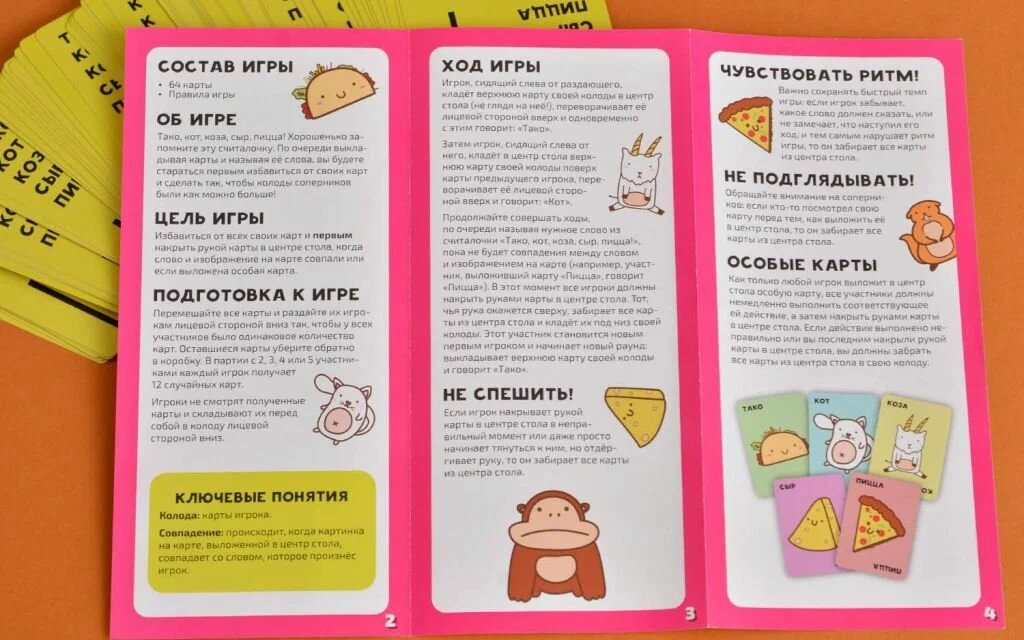 СОСТАВ ИГРЫ
• 64 карты
• Правила игры
ОБ ИГРЕ
Тако, кот, коза, сыр, пицца! Хорошенько за-
помните эту считалочку. По очереди выкла-
дывая карты и называя её слова, вы будете
стараться первым избавиться от своих карт
и сделать так, чтобы колоды соперников
были как можно больше!
ЦЕЛЬ ИГРЫ
Избавиться от всех своих карт и первым
накрыть рукой карты в центре стола, когда
слово и изображение на карте совпали или
если выложена особая карта.
ПОДГОТОВКА К ИГРЕ
Перемешайте все карты и раздайте их игро-
кам лицевой стороной вниз так, чтобы у всех
участников было одинаковое количество
карт. Оставшиеся карты уберите обратно
в коробку. В партии с 2, 3, 4 или 5 участни-
ками каждый игрок получает
12 случайных карт.
Игроки не смотрят полученные
карты и складывают их перед
собой в колоду лицевой
стороной вниз.
КЛЮЧЕВЫЕ ПОНЯТИЯ
Колода: карты игрока.
Совпадение: происходит, когда картинка
на карте, выложенной в центр стола,
совпадает со словом, которое произнёс
игрок.
2
ХОД ИГРЫ
Игрок, сидящий слева от раздающего,
кладёт верхнюю карту своей колоды в центр
стола (не глядя на неё!), переворачивает её
лицевой стороной вверх и одновременно
с этим говорит: «Тако».
Затем игрок, сидящий слева от
него, кладёт в центр стола верх-
нюю карту своей колоды поверх
карты предыдущего игрока, пере-
ворачивает её лицевой сторо-
ной вверх и говорит: «Кот».
Продолжайте совершать ходы,
по очереди называя нужное слово из
считалочки «Тако, кот, коза, сыр, пицца!»,
пока не будет совпадения между словом
и изображением на карте (например, участ-
ник, выложивший карту «Пицца», говорит
«Пицца»). В этот момент все игроки должны
накрыть руками карты в центре стола. Тот,
чья рука окажется сверху, забирает все кар-
ты из центра стола и кладёт их под низ своей
колоды. Этот участник становится новым
первым игроком и начинает новый раунд:
выкладывает верхнюю карту своей колоды
и говорит «Тако».
НЕ СПЕШИТЬ!
Если игрок накрывает рукой
карты в центре стола в непра-
вильный момент или даже просто
начинает тянуться к ним, но отдёр-
гивает руку, то он забирает все карты
из центра стола.
3
ЧУВСТВОВАТЬ РИТМ!
Важно сохранять быстрый темп
игры: если игрок забывает,
какое слово должен сказать, или
не замечает, что наступил его
ход, и тем самым нарушает ритм
игры, то он забирает все карты
из центра стола.
НЕ ПОДГЛЯДЫВАТЬ!
Обращайте внимание на соперни-
ков: если кто-то посмотрел свою
карту перед тем, как выложить её
в центр стола, то он забирает все
карты из центра стола.
ОСОБЫЕ КАРТЫ
Как только любой игрок выложит в центр
стола особую карту, все участники должны
немедленно выполнить соответствующее
ей действие, а затем накрыть руками карты
в центре стола. Если действие выполнено не-
правильно или вы последним накрыли рукой
карты в центре стола, вы должны забрать
все карты из центра стола в свою колоду.
ТАКО
КОТ
КОЗА
СЫР
ПИЦЦА
ПИЦЦА
4
ПИЦЦА
КОТ
КОЗ
СЫ
ПИ